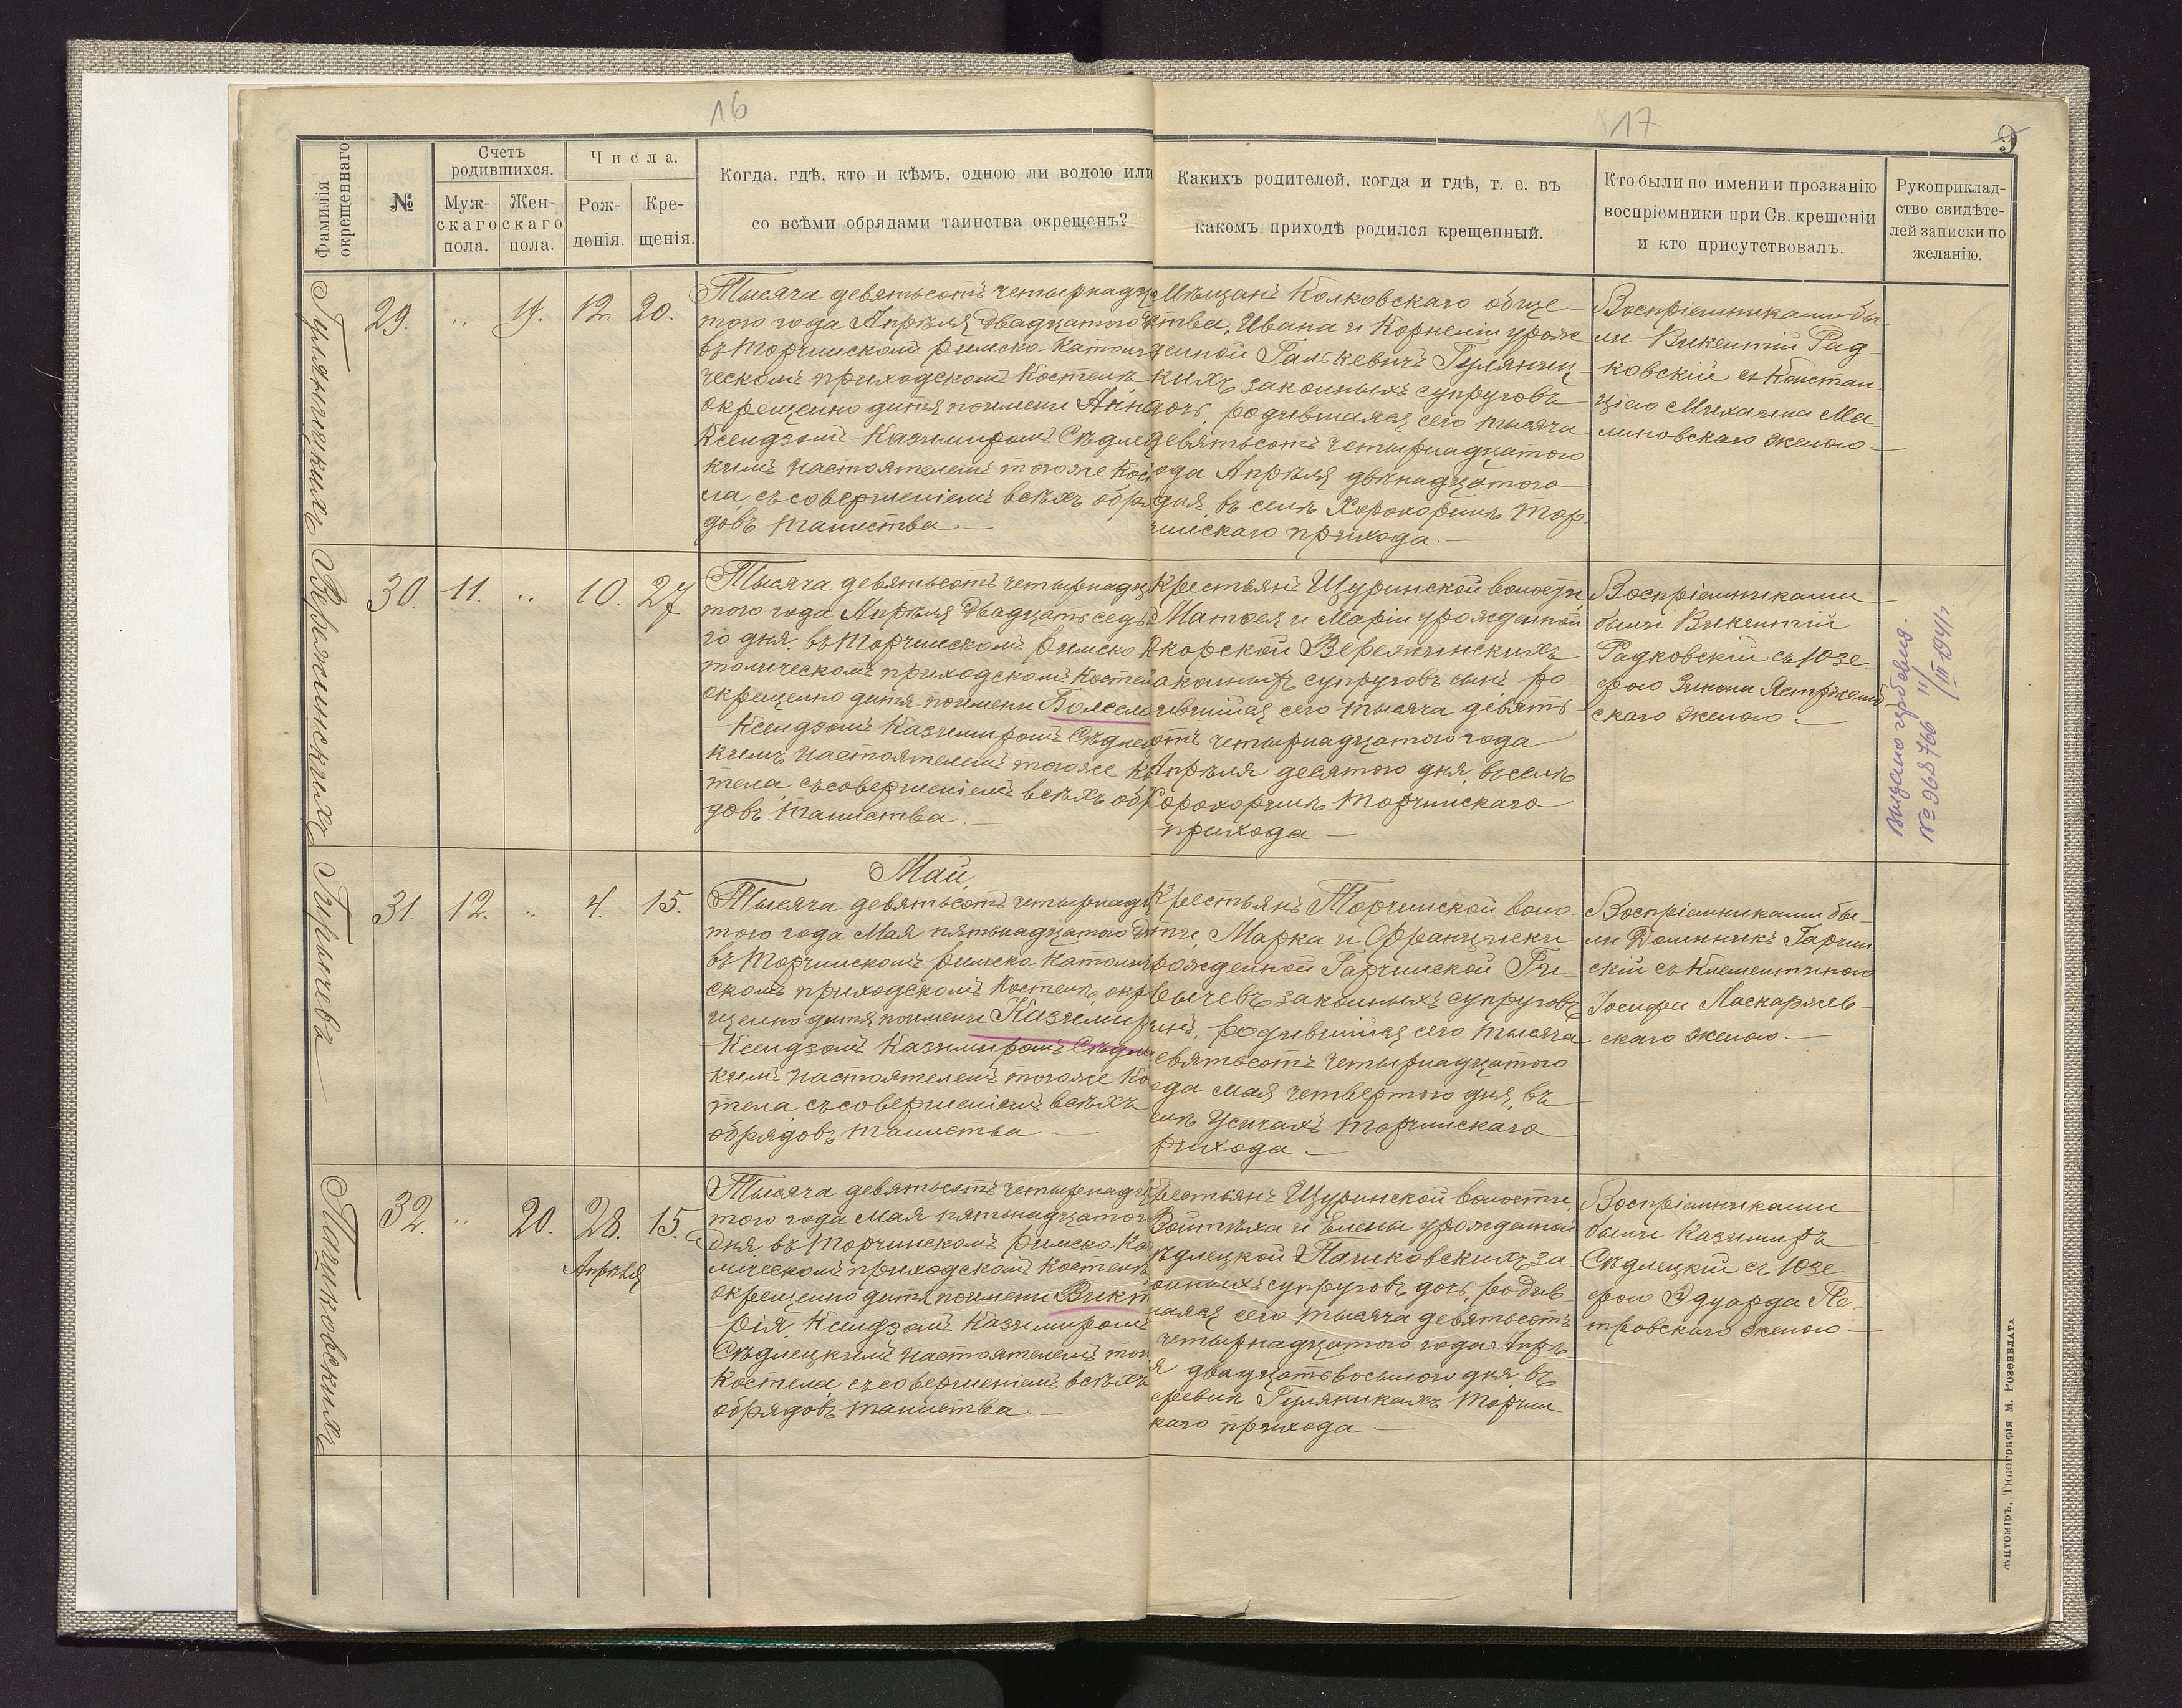 16
17
9
Фамилія окрещеннаго
№
Счетъ родившихся.
Муж-
скаго
пола.
Жен-
скаго
пола.
Числа.
Рож-
денія.
Кре-
щенія.
Когда, гдѣ, кто и кѣмъ, одною ли водою или
со всѣми обрядами таинства окрещенъ?
Какихъ родителей, когда и гдѣ, т. е. въ
какомъ приходѣ родился крещенный.
Кто были по имени и прозванію
воспріемники при Св. крещеніи
и кто присутствовалъ.
Рукоприклад-
ство свидѣте-
лей записки по
желанію.
Гуляницкихъ
29. „ 19. 12 20.
Тысяча девятьсотъ четырнадца
того года Апрѣля двадцатого
въ Торчинскомъ римско-католи
ческомъ приходскомъ костелѣ
окрещено дитя поимени Анна
Ксендзомъ Казимиромъ Сѣдлец
кимъ настоятелемъ тогоже кос
ла, съ совершеніемъ всѣхъ обря
довъ таинства. —
Мѣщанъ Колковскаго обще-
ства, Ивана и Корнеліи урож
денной Галькевичъ Гуляниц-
кихъ законныхъ супруговъ
дочь родившаяся сего тысяча
девятьсотъ четырнадцатого
ода Апрѣля двѣнадцатого
дня, въ селѣ Хорохоринѣ Тор-
чинскаго прихода. —
Воспріемниками бы-
ли Викентій Рад-
ковскій съ Констан-
ціею Михаила Ма-
линовскаго женою —
Вережинскихъ
30. 11. „ 10. 27
Тысяча девятьсотъ четырнадц
того года Апрѣля двадцать седь
го дня, въ Торчинскомъ римско
толическомъ приходскомъ костел
окрещено дитя поимени Болесла
Ксендзомъ Казимиромъ Сѣдлец
кимъ настоятелемъ тогоже к
тела, съ совершеніемъ всѣхъ обр
довъ таинства. —
Крестьянъ Щуринской волости,
Матвея и Маріи урожденной
корской Вережинскихъ
аконныхъ супруговъ сынъ ро-
дившійся сего тысяча девять-
отъ четырнадцатого года
Апрѣля десятого дня, въ селѣ
Хорохоринѣ Торчинскаго
прихода —
Воспріемниками
были Викентій
Радковскій съ Юзе-
фою Зинона Ястржемб-
скаго женою. —
№ 968,766 11/III 1941г.
Гирычевъ
Май.
31. 12. „ 4. 15.
Тысяча девятьсотъ четырнадц
того года Мая пятнадцатого дн
въ Торчинскомъ римско-католич
скомъ приходскомъ костелѣ, окр
щено дитя поимени Казимир
Ксендзомъ Казимиромъ Сѣдлец
кимъ настоятелемъ тогоже ко
тела, съ совершеніемъ всѣхъ
обрядовъ таинства —
Крестьянъ Торчинской воло-
сти, Марка и Францишки
рожденной Гарчинской Ги-
рычевъ законныхъ супруговъ
сынъ, родившійся сего тысяча
евятьсотъ четырнадцатого
ода Мая четвертого дня, въ
селѣ Усичахъ Торчинскаго
рихода —
Воспріемниками бы-
ли Доминикъ Гарчин-
скій съ Клементиною
Іосифа Ласкаржев-
скаго женою —
Пашковскихъ
32. „ 20. 28. 15.
Апрѣля
Тысяча девятьсотъ четырнадца
того года Мая пятнадцатого
дня, въ Торчинскомъ римско-Ка
лическомъ приходскомъ костелѣ
окрещено дитя поимени Викто
рія, Ксендзомъ Казимиромъ
Сѣдлецкимъ настоятелемъ того
костела, съ совершеніемъ всѣхъ
обрядовъ таинства. —
рестьянъ Щуринской волости,
Войтѣха и Елены урожденной
ѣдлецкой Пашковскихъ за-
онныхъ супруговъ дочь, родив-
шаяся сего тысяча девятьсотъ
четырнадцатого года Апрѣ-
я двадцать восьмого дня, въ
еревнѣ Гуляникахъ Торчин-
каго прихода —
Воспріемниками
были Казимиръ
Сѣдлецкій съ Юзе
фою Эдуарда Пе-
тровскаго женою —
Житоміръ, Типографія М. Розенблата